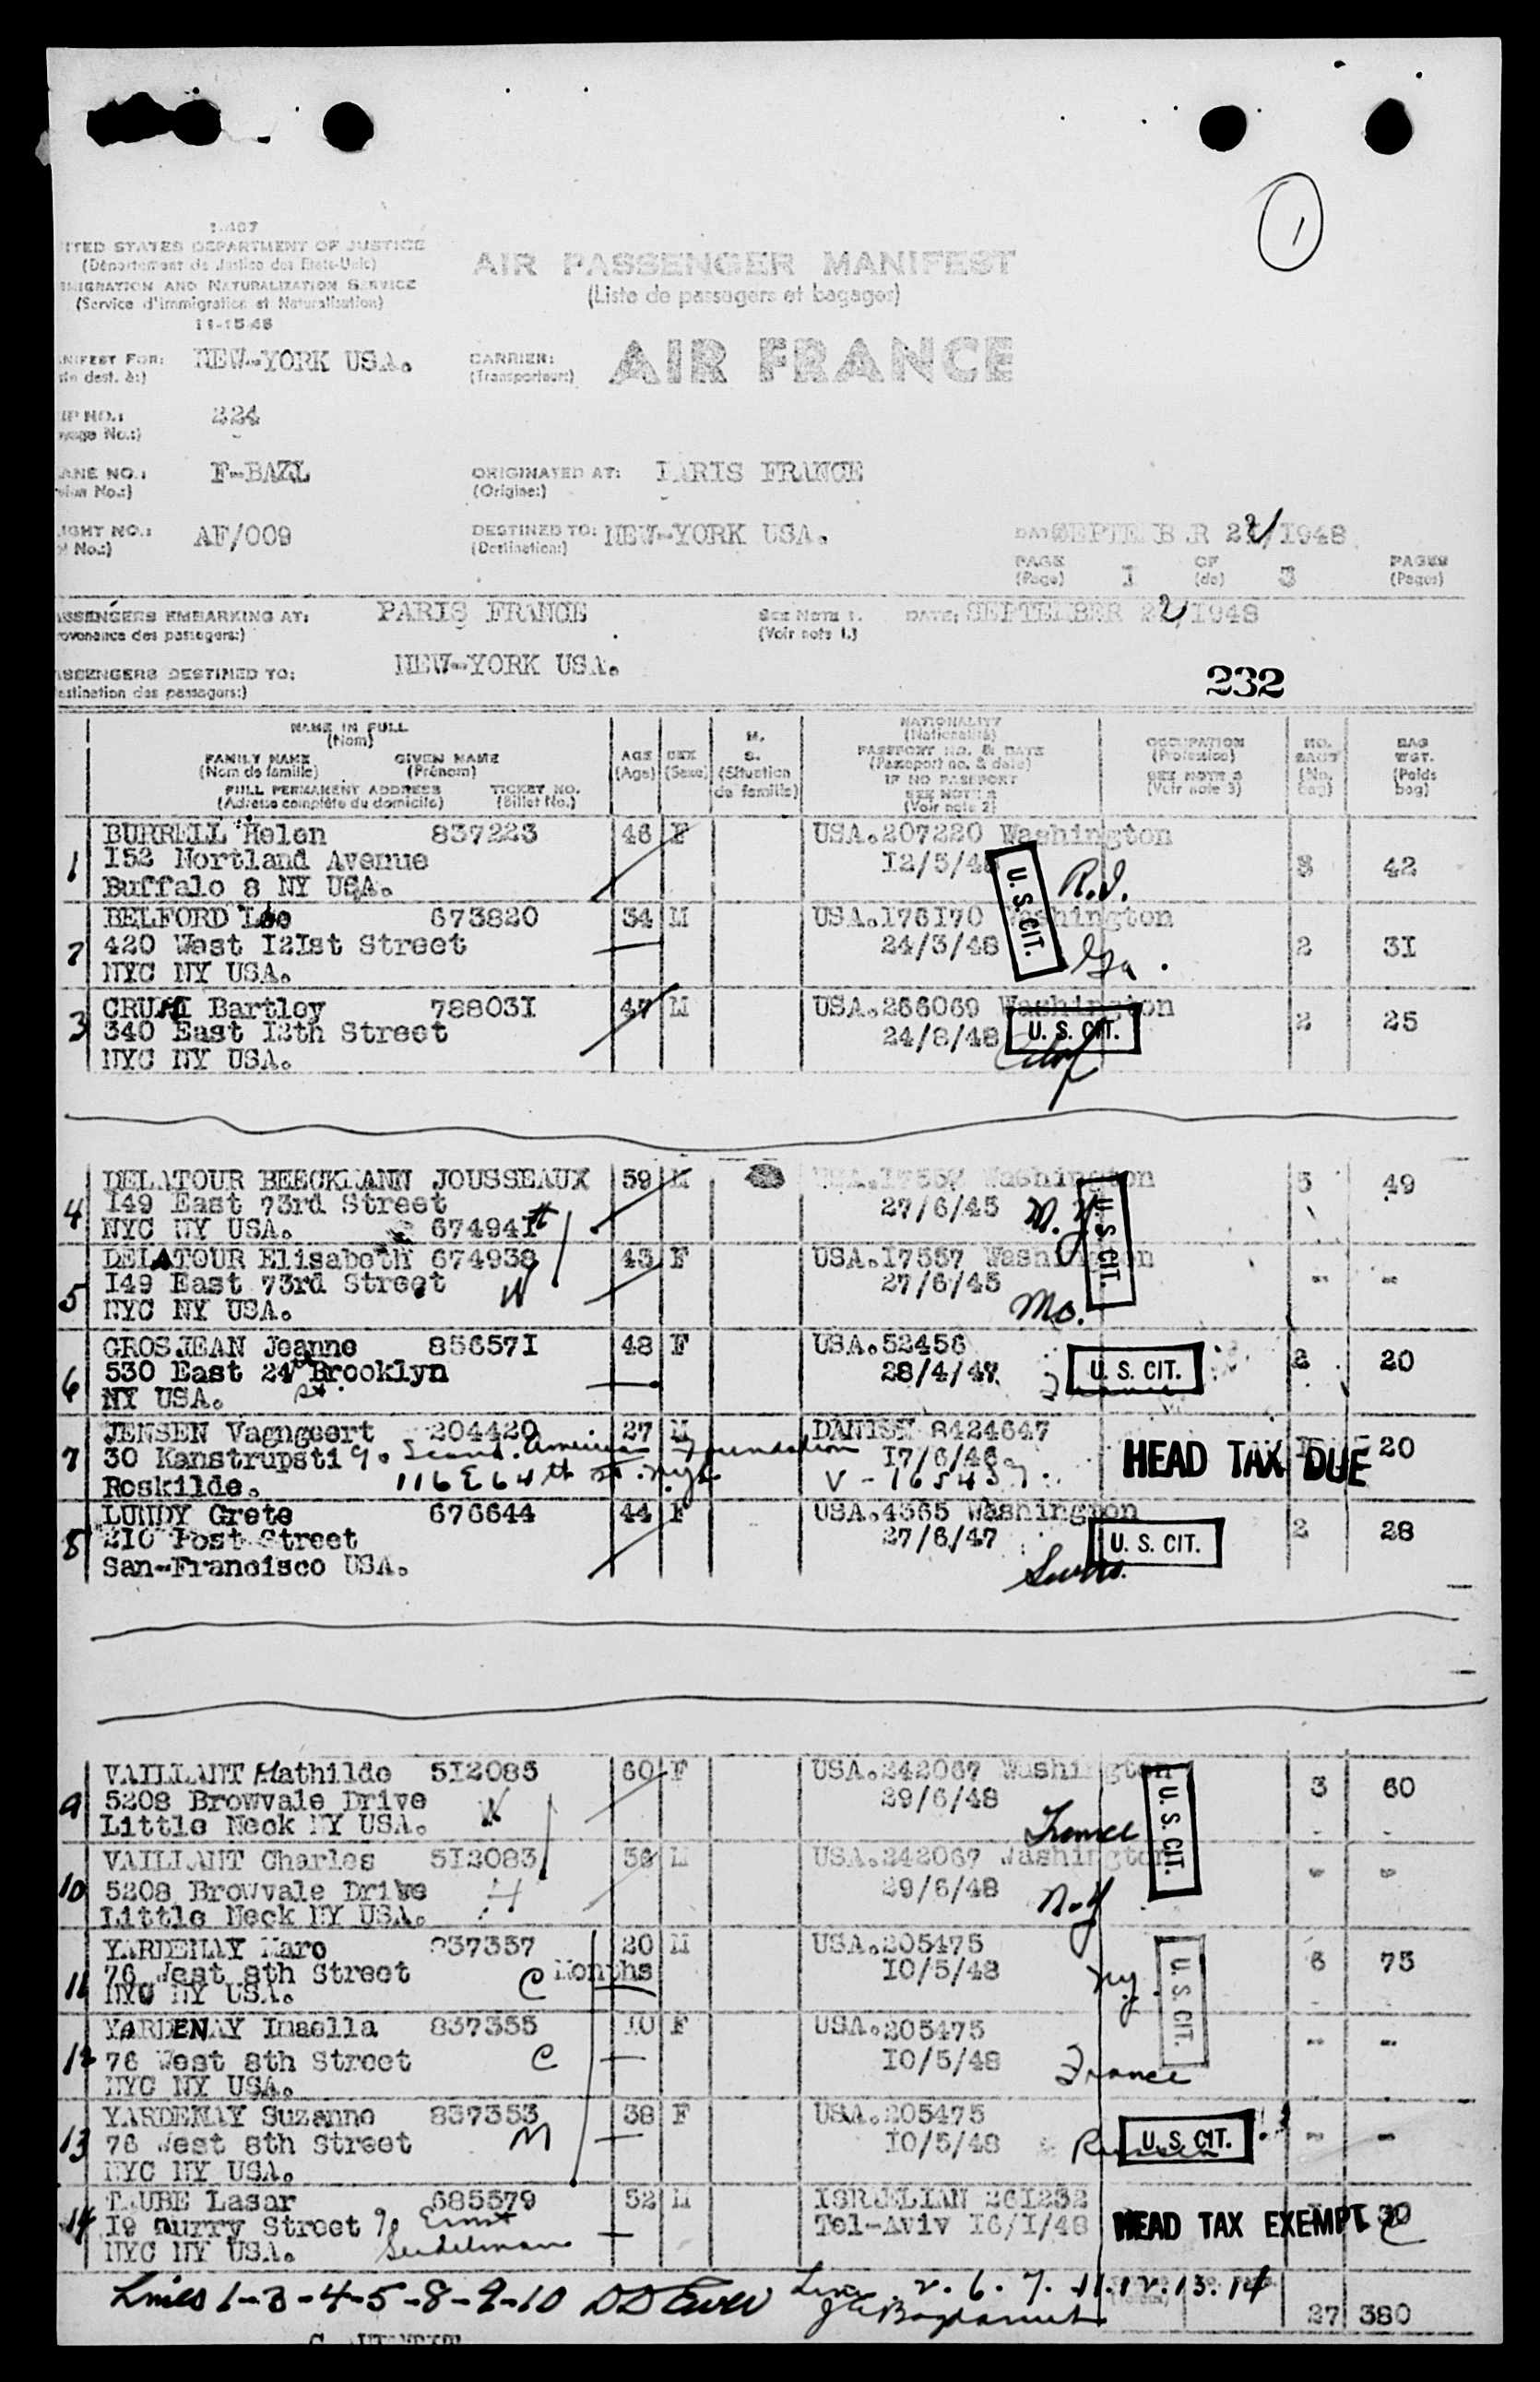 I-407
ITED STATES DEPARTMENT OF JUSTICE
(Département de Justice des Etats-Unis)
MIGRATION AND NATURALIZATION SERVICE
(Service d'immigration et Naturalisation)
11-15-46
AIR PASSENGER MANIFEST
(Liste de passagers et bagages)
1
NIFEST FOR: NEW-YORK USA.
dest. à:)
CARRIER: AIR FRANCE
(Transporteurs)
IP NO.: 224
No.:)
ANE NO.: F-BAZL
No.:)
ORIGINATED AT: PARIS FRANCE
(Origine:)
IGHT NO.: AF/009
No.:)
DESTINED TO: NEW-YORK USA.
(Destination:)
SEPTEMB R 22/1948
PAGE 1 OF 3 PAGES
(Page) (de) (Pages)
ASSENGERS EMBARKING AT: PARIS FRANCE
ovenance des passagers:)
SEE NOTE 1.
(Voir note 1.)
DATE: SEPTEMBER 22/1948
ASSENGERS DESTINED TO: NEW-YORK USA.
estination des passagers:)
232
NAME IN FULL
(Nom)
FAMILY NAME GIVEN NAME
(Nom de famille) (Prénom)
FULL PERMANENT ADDRESS TICKET NO.
(Adresse complète du domicile) (Billet No.)
AGE
(Age)
SEX
(Sexe)
M.
S.
(Situation
de famille)
NATIONALITY
(Nationalité)
PASSPORT NO. & DATE
(Passeport no. & date)
IF NO PASSPORT
SEE NOTE 2
(Voir note 2)
OCCUPATION
(Profession)
SEE NOTE 3
(Voir note 3)
NO.
BAGS
(No.
bag)
BAG
WGT.
(Poids
bag)
1 BURRELL Helen 837223 46 F USA.207220 Washington
152 Nortland Avenue 12/5/48 U.S. CIT. R.I. 3 42
Buffalo 8 NY USA.
2 BELFORD Lee 673820 34 M USA.176170 Washington
420 West 121st Street 24/3/48 Ga. 2 31
NYC NY USA.
3 CRUMI Bartley 788031 47 M USA.266069 Washington
340 East 12th Street 24/8/48 U. S. CIT. 2 25
NYC NY USA.
4 DELATOUR BEECKMANN JOUSSEAUX 59 M USA.17557 Washington 5 49
149 East 73rd Street 27/6/45 N.Y. U. S. CIT.
NYC NY USA. 674941 H
5 DELATOUR Elisabeth 674938 43 F USA.17557 Washington
149 East 73rd Street W 27/6/45 - -
NYC NY USA. Mo.
6 GROSJEAN Jeanne 856571 48 F USA.52456
530 East 24 Brooklyn 28/4/47 U. S. CIT. 2 20
NY USA. st.
7 JENSEN Vagngeert 204420 27 M DANISH 8424647
30 Kanstrupsti c/o Scand. American Foundation 17/6/46 HEAD TAX DUE 20
Roskilde. 116 E 64th St. nyc V - 165437
8 LUNDY Grete 676644 44 F USA.4365 Washington
210 Post Street 27/6/47 U. S. CIT. 2 28
San-Francisco USA.
9 VAILLANT Mathilde 512085 60 F USA.242067 Washington
5208 Browvale Drive W 29/6/48 U. S. CIT. 3 60
Little Neck NY USA. France
10 VAILLANT Charles 512083 56 M USA.242067 Washington
5208 Browvale Drive H 29/6/48 N.Y - -
Little Neck NY USA.
11 YARDENAY Marc 837357 20 M USA.205475
76 West 8th Street C Months 10/5/48 N.Y. U. S. CIT. 6 75
NYC NY USA.
12 YARDENAY Imaella 837355 10 F USA.205475
76 West 8th Street C 10/5/48 France - -
NYC NY USA.
13 YARDENAY Suzanne 837353 38 F USA.205475
76 West 8th Street M 10/5/48 U. S. CIT. - -
NYC NY USA.
14 TAUBE Lasar 685579 52 M ISRAELIAN 261232
19 Murry Street c/o Ernst Tel-Aviv 16/1/48 HEAD TAX EXEMPT 30
NYC NY USA. Seidelmann
Lines 1-3-4-5-8-9-10 Line 2. 6. 7. 11. 12. 13. 14
27 380